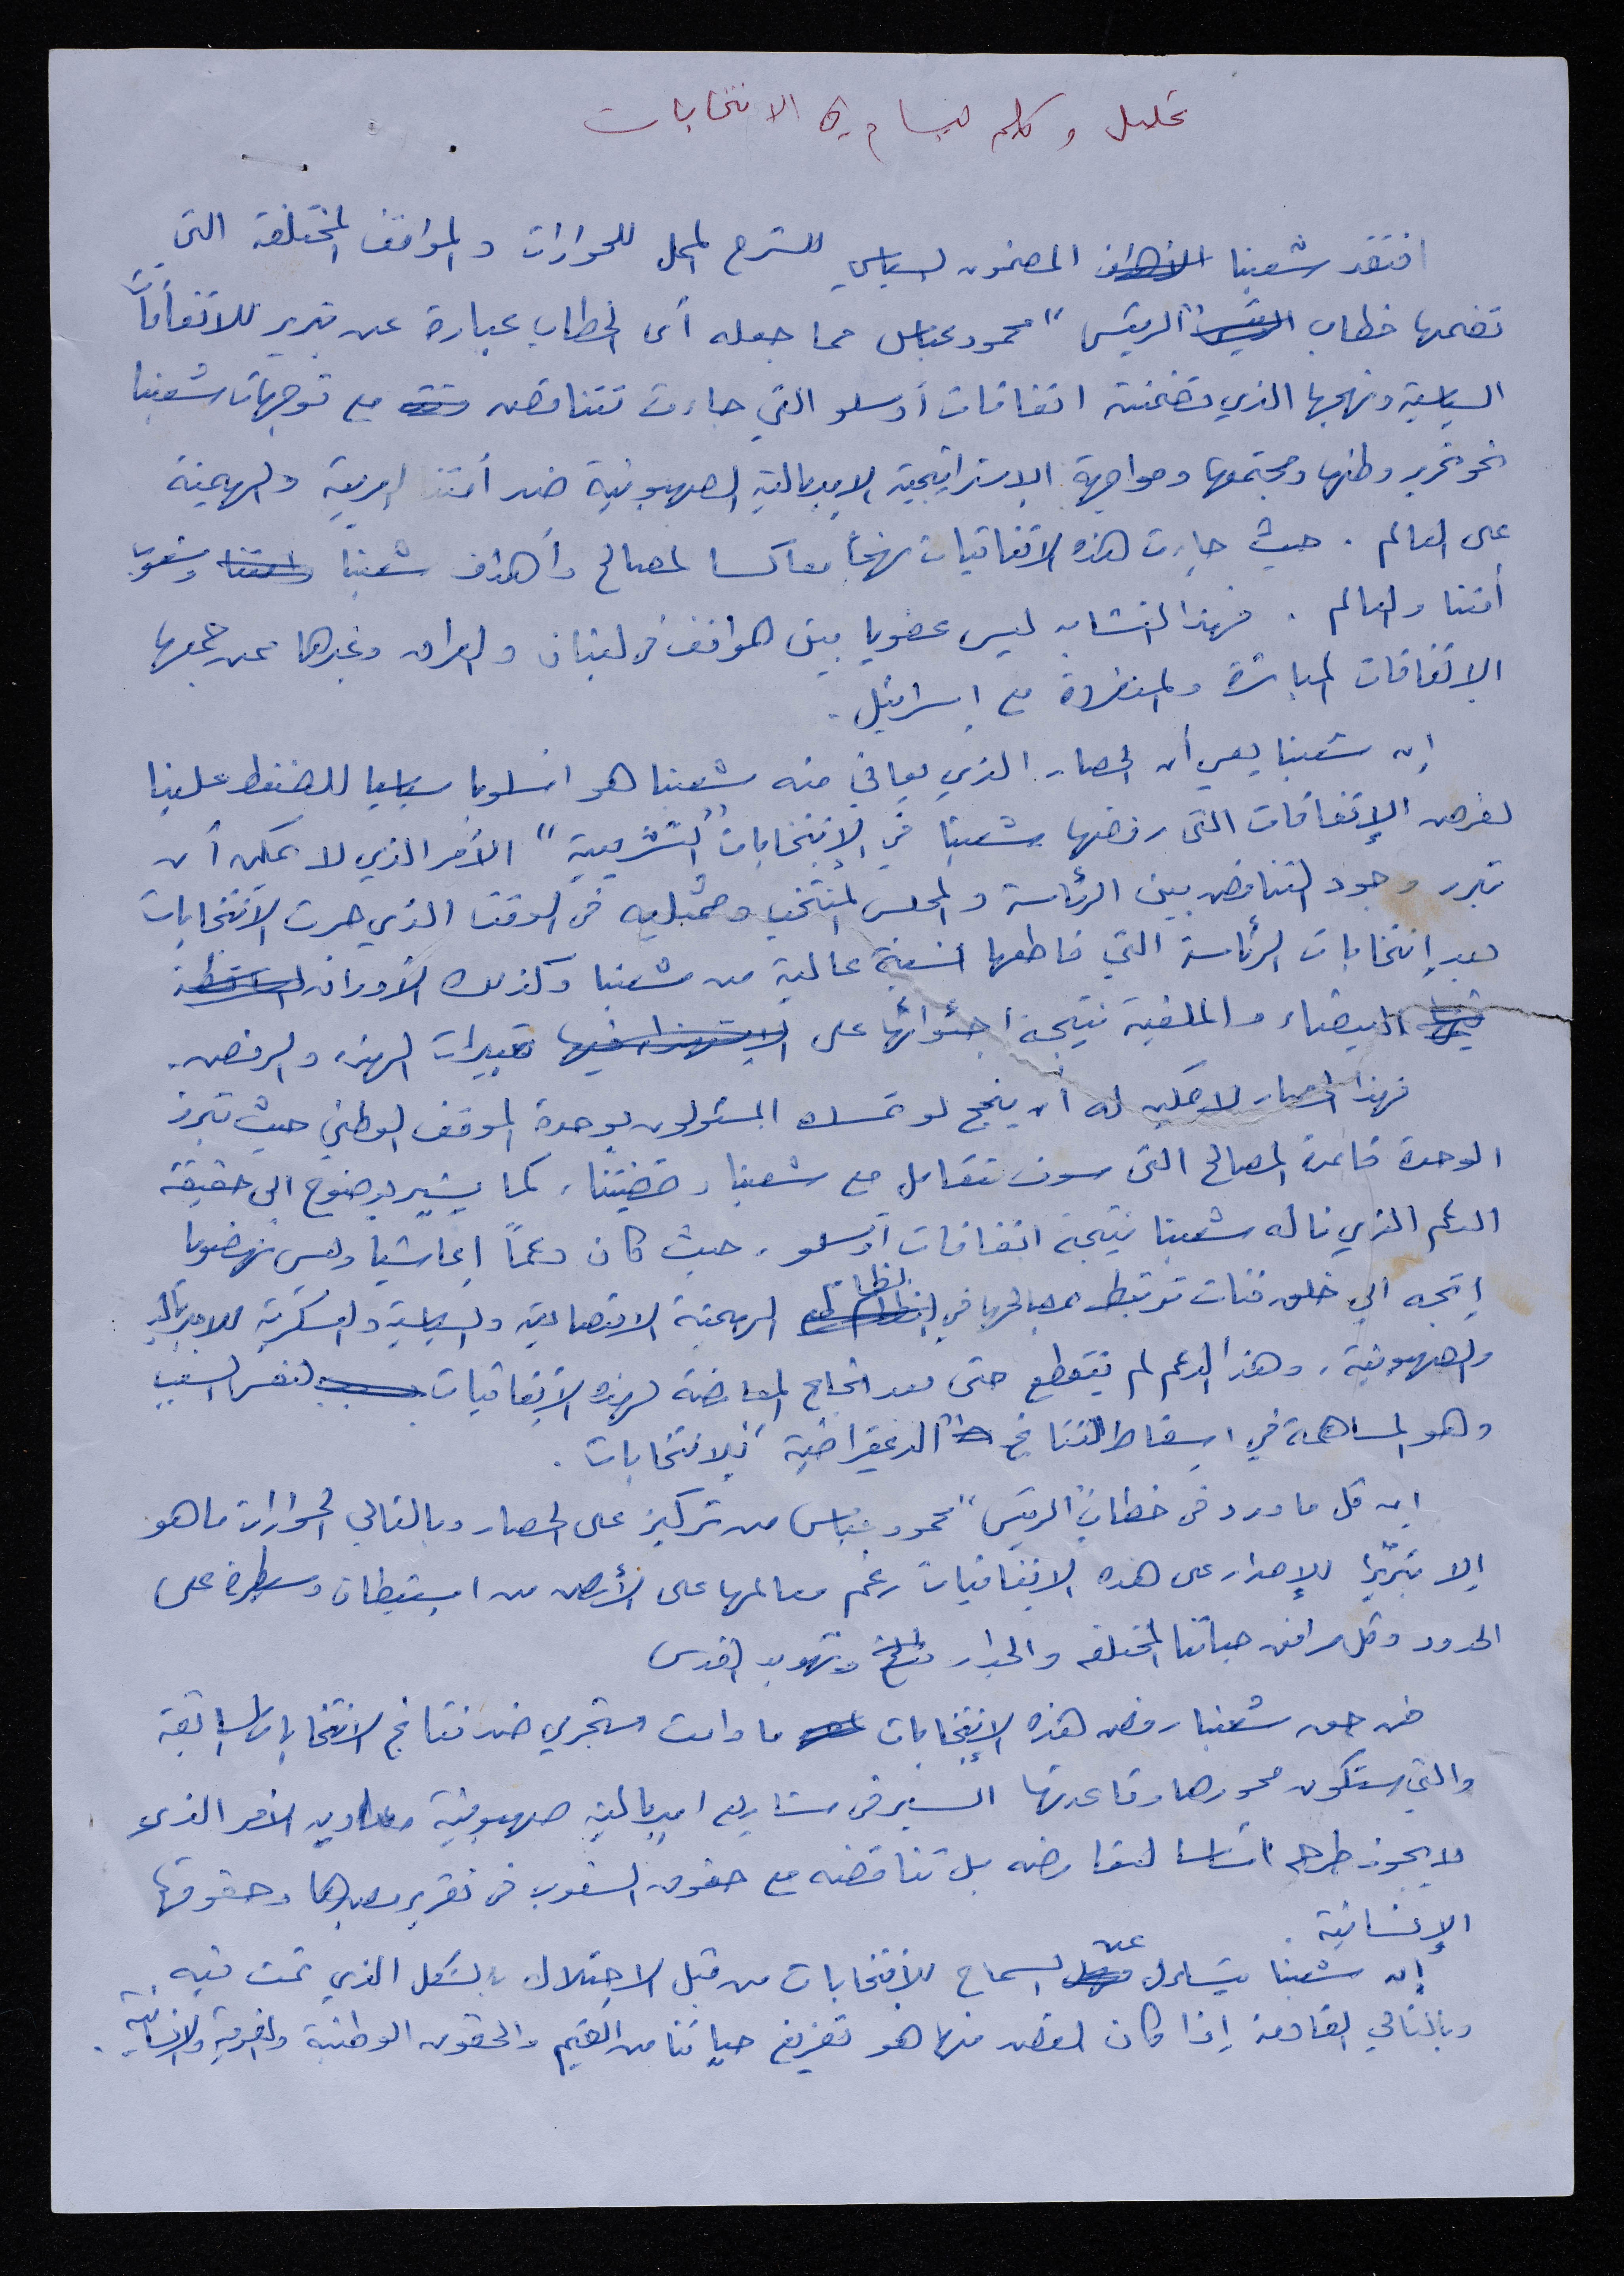 تحليل وكلمه لبسام في الانتخابات
افتقد شعبنا المضمون السياسي للشرح الممل للحوارات والمواقف المختلفة التي
تضمها خطاب "الرئيس" محمود عباس مما جعله أي الخطاب عبارة عن تبرير للاتفاقات
السياسية ونهجها الذي تضمنته اتفاقات أوسلو التي جاءت تتناقض مع توجهات شعبنا
نحو تحرير وطنها ومجتمعها ومواجهة الاستراتيجية الامبريالية الصهيونية ضد أمتنا العربية والهيمنة
على العالم . حيث جاءت هذه الاتفاقيات نهجاً معاكسا لمصالح وأهداف شعبنا وشعوب
أمتنا والعالم . فهذا التشابه ليس عضويا بين المواقف في لبنان والعراق وغيرها ممن جمعها
الاتفاقات المباشرة والمنفردة مع إسرائيل .
إن شعبنا يعي أن الحصار الذي يعاني منه شعبنا هو اسلوبا سياسيا للضغط علينا
لفرض الإتفاقات التي رفضها شعبنا في الإنتخابات "التشريعية" الأمر الذي لا يمكن أن
تبرر وجود التناقض بين الرئاسة والمجلس المنتخب وممثليه في الوقت الذي جرت الانتخابات
بعد إنتخابات الرئاسة التي قاطعها نسبة عالية من شعبنا وكذلك الأوراق
البيضاء والملغية نتيجة احتوائها على تعبيرات الهزء والرفض .
فهذا الحصار لا يمكن له أن ينجح لو تمسك المسئولون بوحدة الموقف الوطني حيث تبرز
الوحدة قاعدة المصالح التي سوف تتعامل مع شعبنا وقضيتنا، كما يشير بوضوح الى حقيقة
الدعم الذي ناله شعبنا نتيجة اتفاقات أوسلو، حيث كان دعماً إعاشيا وليس نهضويا
إتجه الى خلق فئات ترتبط مصالحها في نظام الهيمنة الاقتصادية والسياسية والعسكرية للامبريالية
والصهيونية، وهذا الدعم لم ينقطع حتى بعد انجاح المعارضة لهذه الإتفاقيات لنفس السبب
وهو المساهمة في إسقاط النتائج "الديمقراطية" للانتخابات .
إن كل ما ورد في خطاب "الرئيس" محمود عباس من تركيز على الحصار وبالتالي الحوارات ما هو
إلا تبريرا للإصرار على هذه الاتفاقيات رغم معالمها على الأرض من استيطان وسيطرة على
الحدود وكل مرافق حياتنا المختلفه والجدار وتهويد القدس
فمن حق شعبنا رفض هذه الإنتخابات ما دامت ستجري ضد نتائج الانتخابات السابقة
والتي ستكون محورها وقاعدتها السير في مشاريع امبريالية صهيونية الأمر الذي
لا يجوز طرحه اساسا لتعارضه بل تناقضه مع حقوق الشعوب في تقرير مصيرها وحقوقها
الإنسانية .
إن شعبنا يتساءل عن السماح للانتخابات من قبل الاحتلال بالشكل الذي تمت فيه
وبالتالي القادمة إذا كان القصد منها هو تفريغ حياتنا من القيم والحقوق الوطنية والقومية والإنسانية .